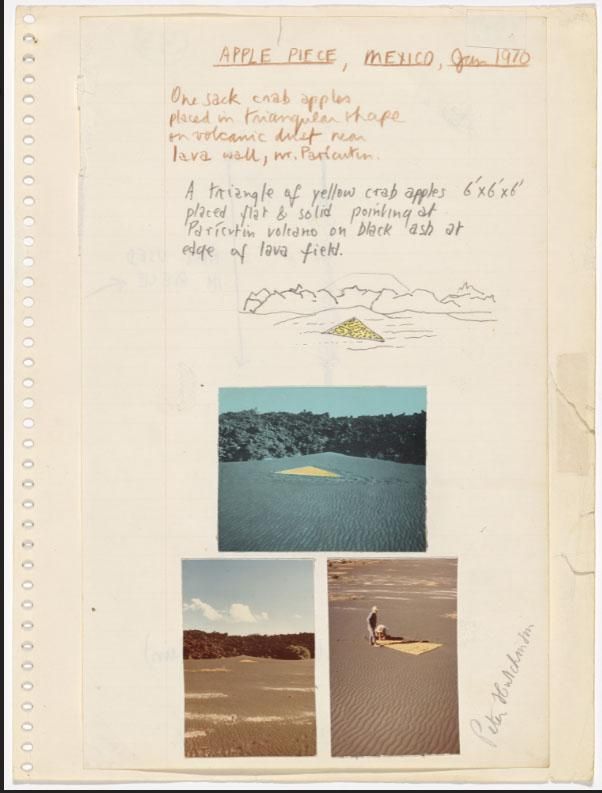 APPLE PIECE, MEXICO, Jan 1970
One sack crab apples
placed in triangular shape
on volcanic dust near
lava wall, nr. Parícutin.
A triangle of yellow crab apples 6'x6'x6'
placed flat & solid pointing at
Parícutin volcano on black ash at
edge of lava field.
Peter Hutchinson